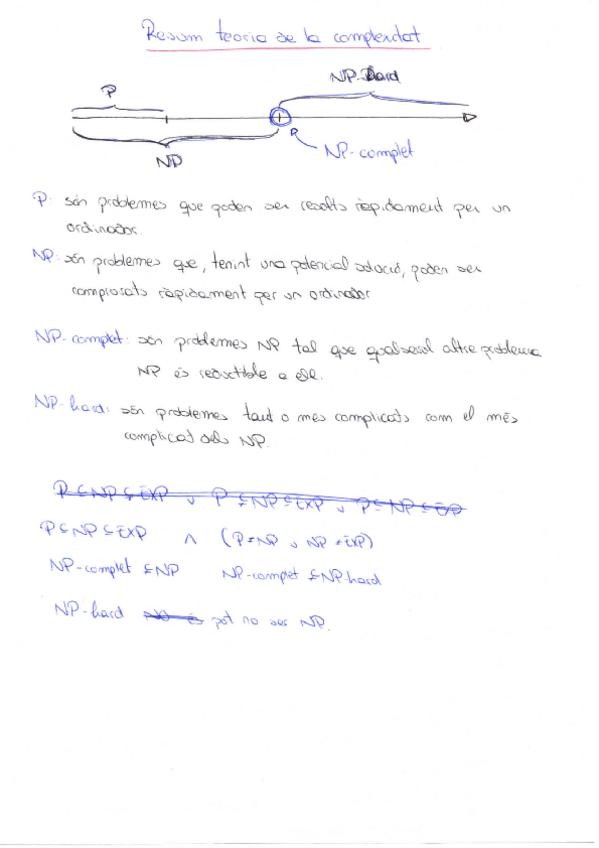 Resum teoria de la complexitat
NP-hard
P
NP
NP-complet
P: són problemes que poden ser resolts ràpidament per un
ordinador.
NP: són problemes que, tenint una potencial solució, poden ser
comprovats ràpidament per un ordinador
NP-complet: són problemes NP tal que qualsevol altre problema
NP és reductible a ell.
NP-hard: són problemes tant o més complicats com el més
complicat dels NP.
P ⊆ NP ⊆ EXP ∨ P ⊆ NP ⊆ EXP ∨ P ⊆ NP ⊆ EXP
P ⊆ NP ⊆ EXP ∧ (P≠NP ∨ NP≠EXP)
NP-complet ⊆ NP NP-complet ⊆ NP-hard
NP-hard pot no ser NP.